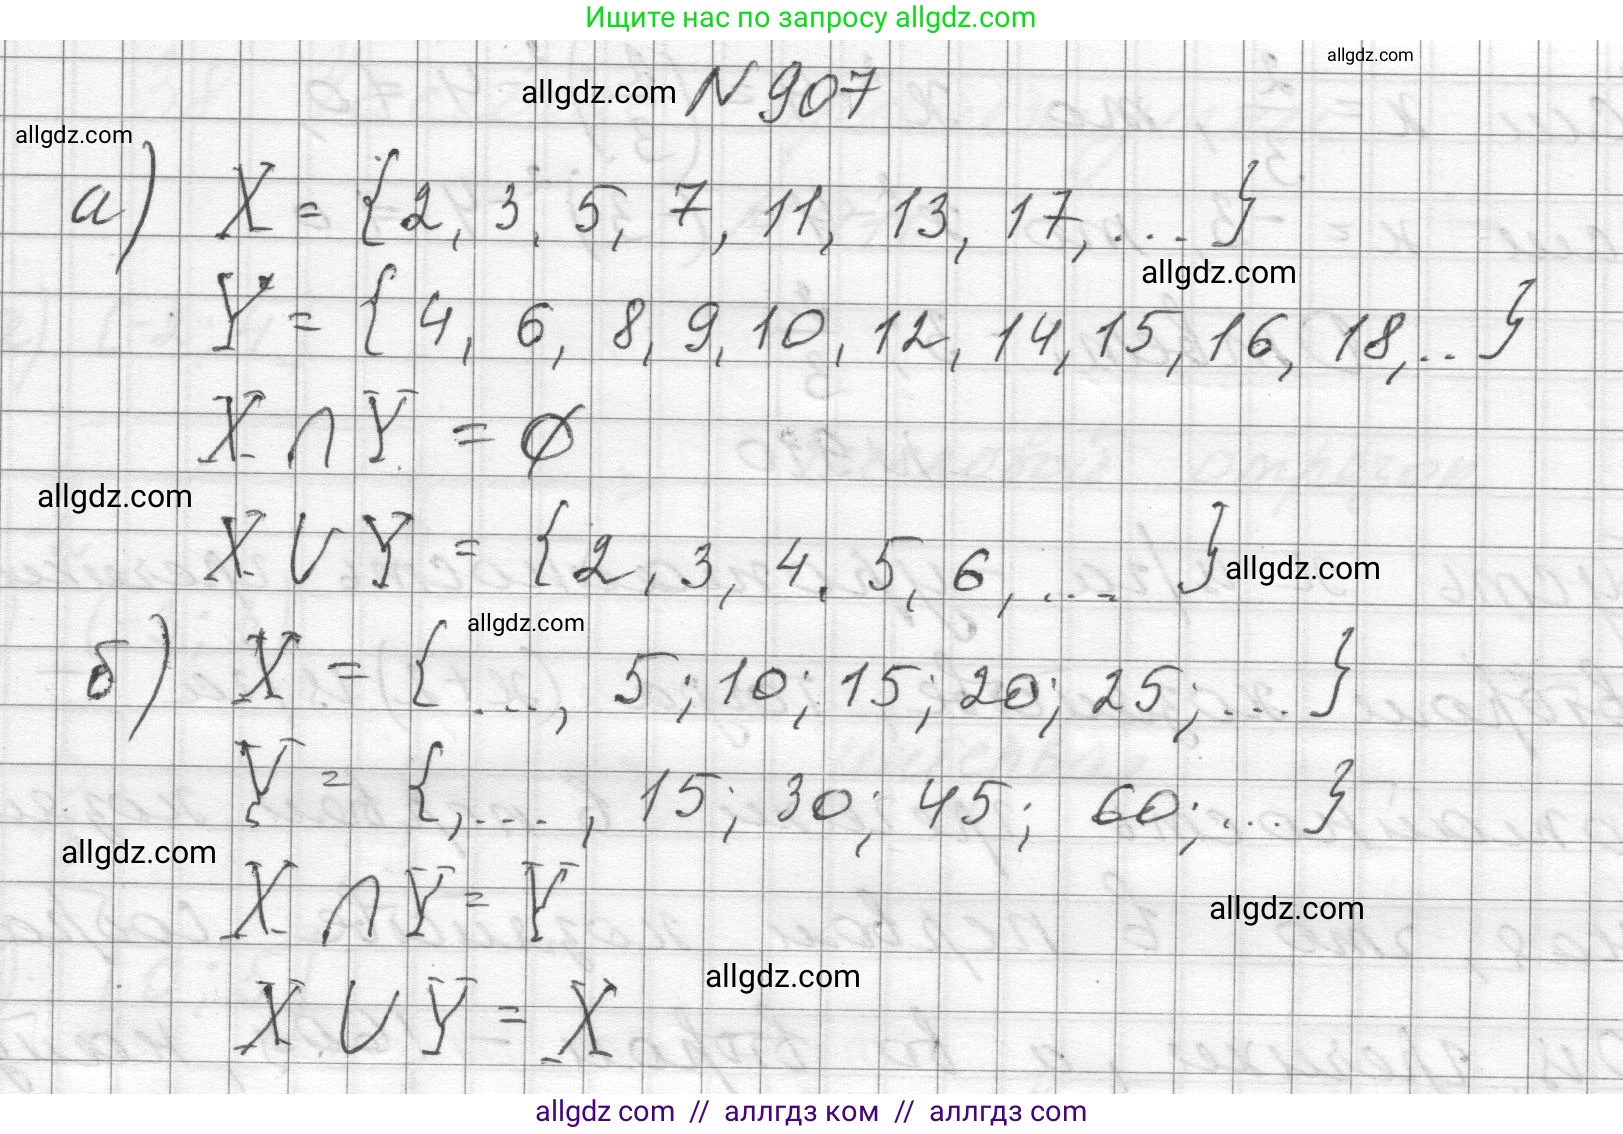 Ищите нас по запросу allgdz.com
allgdz.com
allgdz.com N 907
allgdz.com
а) X = {2, 3, 5, 7, 11, 13, 17, ...}
allgdz.com
Y = {4, 6, 8, 9, 10, 12, 14, 15, 16, 18, ..}
X ∩ Y = ∅
allgdz.com
X ∪ Y = {2, 3, 4, 5, 6, ... }
allgdz.com
allgdz.com
б) X = {..., 5; 10; 15; 20; 25; ...}
Y = {, ..., 15; 30; 45; 60; ...}
allgdz.com
X ∩ Y = Y
allgdz.com
allgdz.com
X ∪ Y = X
allgdz com // аллгдз ком // аллгдз com